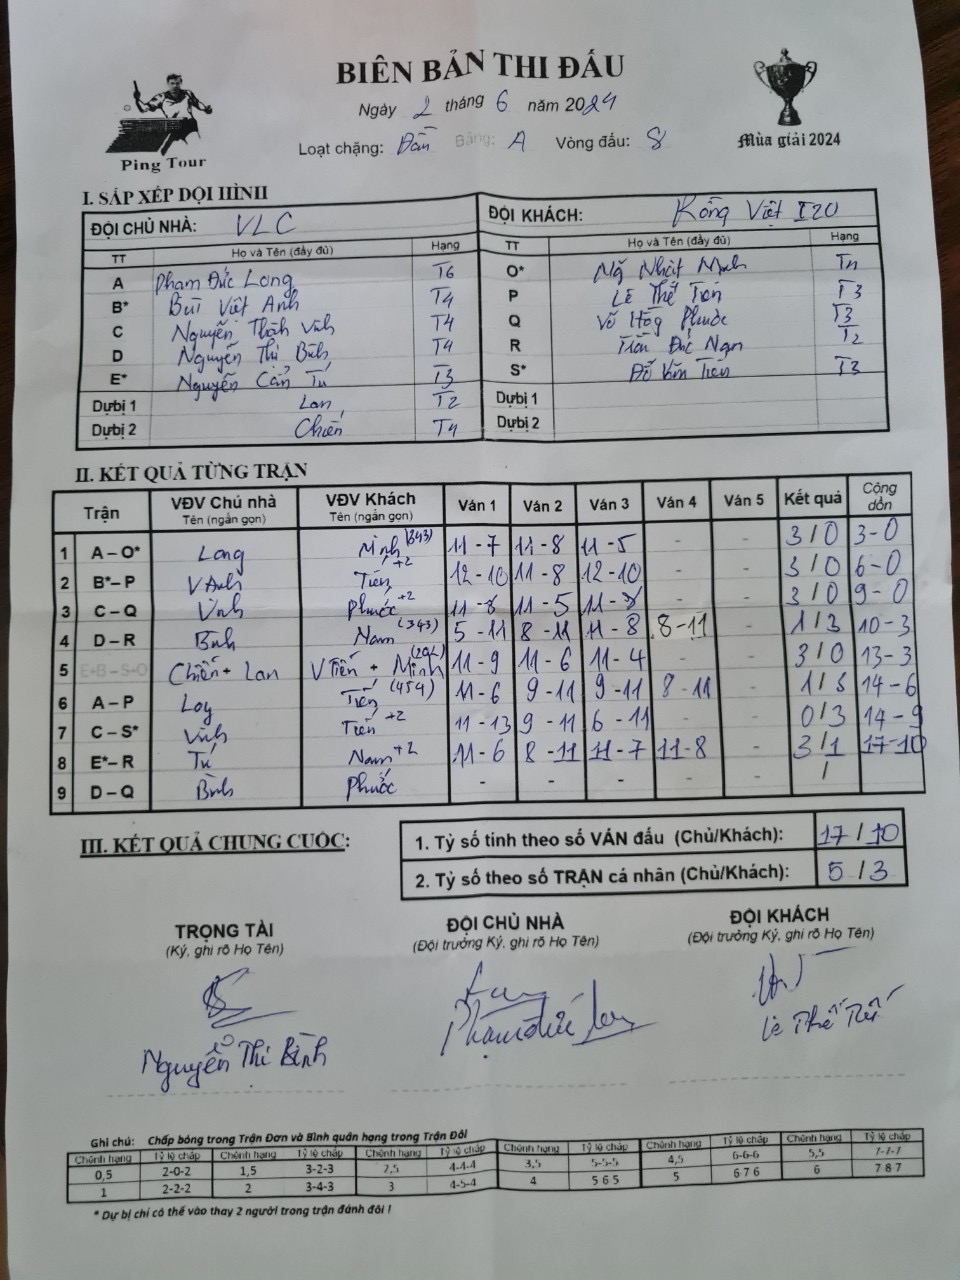 BIÊN BẢN THI ĐẤU
Ngày 2 tháng 6 năm 2024
Ping Tour
Loạt chặng: Bán Bảng: A Vòng đấu: 8
Mùa giải 2024
I. SẮP XẾP ĐỘI HÌNH
ĐỘI CHỦ NHÀ: VLC ĐỘI KHÁCH: Rồng Việt I20
TT Họ và Tên (đầy đủ) Hạng TT Họ và Tên (đầy đủ) Hạng
A Phạm Đức Long T6 O* Nhật Minh
B* Bùi Việt Anh T4 P Lê Thế Tiến T3
C Nguyễn Thành Vinh T4 Q Phước T3
D Nguyễn Thị Bình T4 R Trần Đức Nam T2
E* Nguyễn Cẩn Tú T3 S* Đỗ Văn Tiến T3
Dự bị 1 Lan T2 Dự bị 1
Dự bị 2 Chiến T4 Dự bị 2
II. KẾT QUẢ TỪNG TRẬN
Trận VĐV Chủ nhà Tên (ngắn gọn) VĐV Khách Tên (ngắn gọn) Ván 1 Ván 2 Ván 3 Ván 4 Ván 5 Kết quả Cộng dồn
1 A – O* Long Minh (343) 11 - 7 11 - 8 11 - 5 - - 3 / 0 3 - 0
2 B* – P V Anh Tiến +2 12 - 10 11 - 8 12 - 10 - - 3 / 0 6 - 0
3 C – Q Vinh Phước +2 11 - 8 11 - 5 11 - 8 - - 3 / 0 9 - 0
4 D – R Bình Nam (343) 5 - 11 8 - 11 11 - 8 8 - 11 - 1 / 3 10 - 3
5 E+B – S+O Chiến + Lan V Tiến + Minh (202) 11 - 9 11 - 6 11 - 4 - - 3 / 0 13 - 3
6 A – P Long Tiến (454) 11 - 6 9 - 11 9 - 11 8 - 11 - 1 / 3 14 - 6
7 C – S* Vinh Tiến +2 11 - 13 9 - 11 6 - 11 - - 0 / 3 14 - 9
8 E* – R Tú Nam +2 11 - 6 8 - 11 11 - 7 11 - 8 - 3 / 1 17 - 10
9 D – Q Bình Phước - - - - - /
III. KẾT QUẢ CHUNG CUỘC:
1. Tỷ số tính theo số VÁN đấu (Chủ/Khách): 17 / 10
2. Tỷ số theo số TRẬN cá nhân (Chủ/Khách): 5 / 3
TRỌNG TÀI ĐỘI CHỦ NHÀ ĐỘI KHÁCH
(Ký, ghi rõ Họ Tên) (Đội trưởng Ký, ghi rõ Họ Tên) (Đội trưởng Ký, ghi rõ Họ Tên)
Nguyễn Thị Bình Phạm Đức Long Lê Thế Tiến
Ghi chú: Chấp bóng trong Trận Đơn và Bình quân hạng trong Trận Đôi
Chênh hạng Tỷ lệ chấp Chênh hạng Tỷ lệ chấp Chênh hạng Tỷ lệ chấp Chênh hạng Tỷ lệ chấp Chênh hạng Tỷ lệ chấp Chênh hạng Tỷ lệ chấp
0,5 2-0-2 1,5 3-2-3 2,5 4-4-4 3,5 5-5-5 4,5 6-6-6 5,5 7-7-7
1 2-2-2 2 3-4-3 3 4-5-4 4 5 6 5 5 6 7 6 6 7 8 7
* Dự bị chỉ có thể vào thay 2 người trong trận đánh đôi !